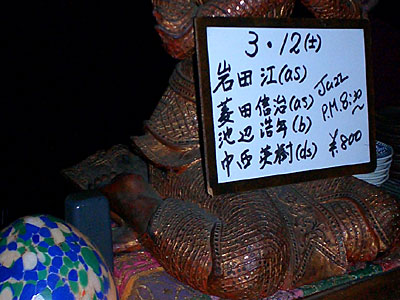 3・12(土)
岩田 江(as)
菱田 信治(as)
池辺 浩年(b)
中西 英樹(ds)
Jazz
P.M.8:30～
¥.800